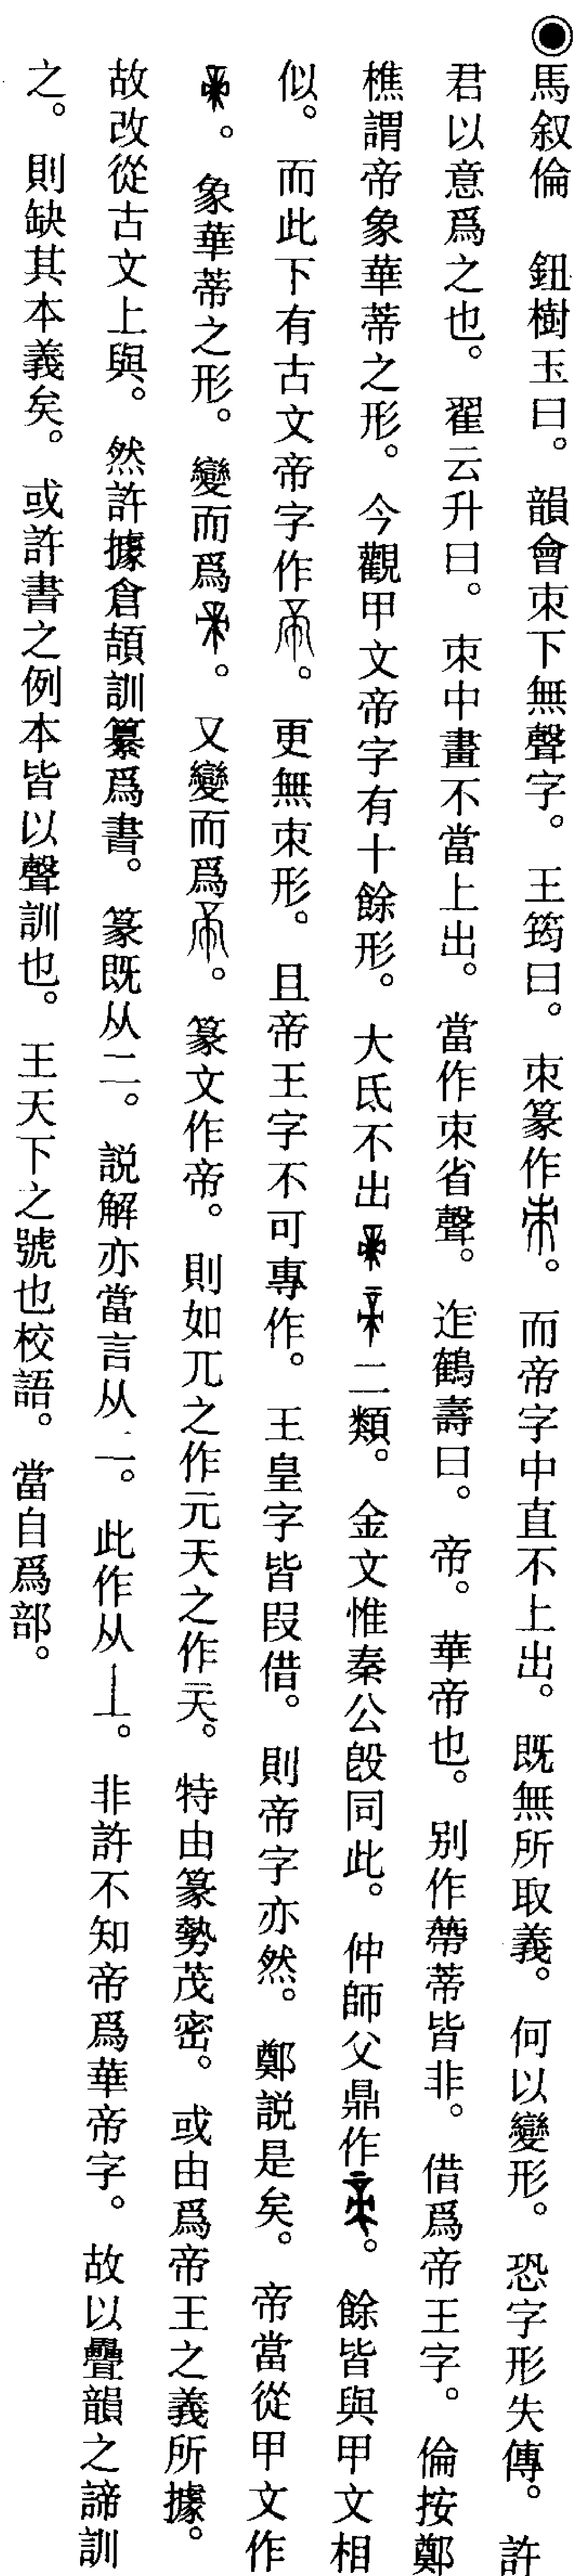 ◉馬叙倫　鈕樹玉曰。韻會朿下無聲字。王筠曰。朿篆作。而帝字中直不上出。既無所取義。何以變形。恐字形失傳。許
君以意爲之也。翟云升曰。朿中畫不當上出。當作朿省聲。迮鶴壽曰。帝。華帝也。别作蔕蒂皆非。借爲帝王字。倫按鄭
樵謂帝象華蒂之形。今觀甲文帝字有十餘形。大氐不出二類。金文惟秦公𣪘同此。仲師父鼎作。餘皆與甲文相
似。而此下有古文帝字作。更無朿形。且帝王字不可專作。王皇字皆叚借。則帝字亦然。鄭説是矣。帝當從甲文作
。象華蒂之形。變而爲。又變而爲。篆文作帝。則如兀之作元天之作。特由篆勢茂密。或由爲帝王之義所據。
故改從古文上與。然許據倉頡訓纂爲書。篆既从二。説解亦當言从二。此作从丄。非許不知帝爲華帝字。故以疊韻之諦訓
之。則缺其本義矣。或許書之例本皆以聲訓也。王天下之號也校語。當自爲部。